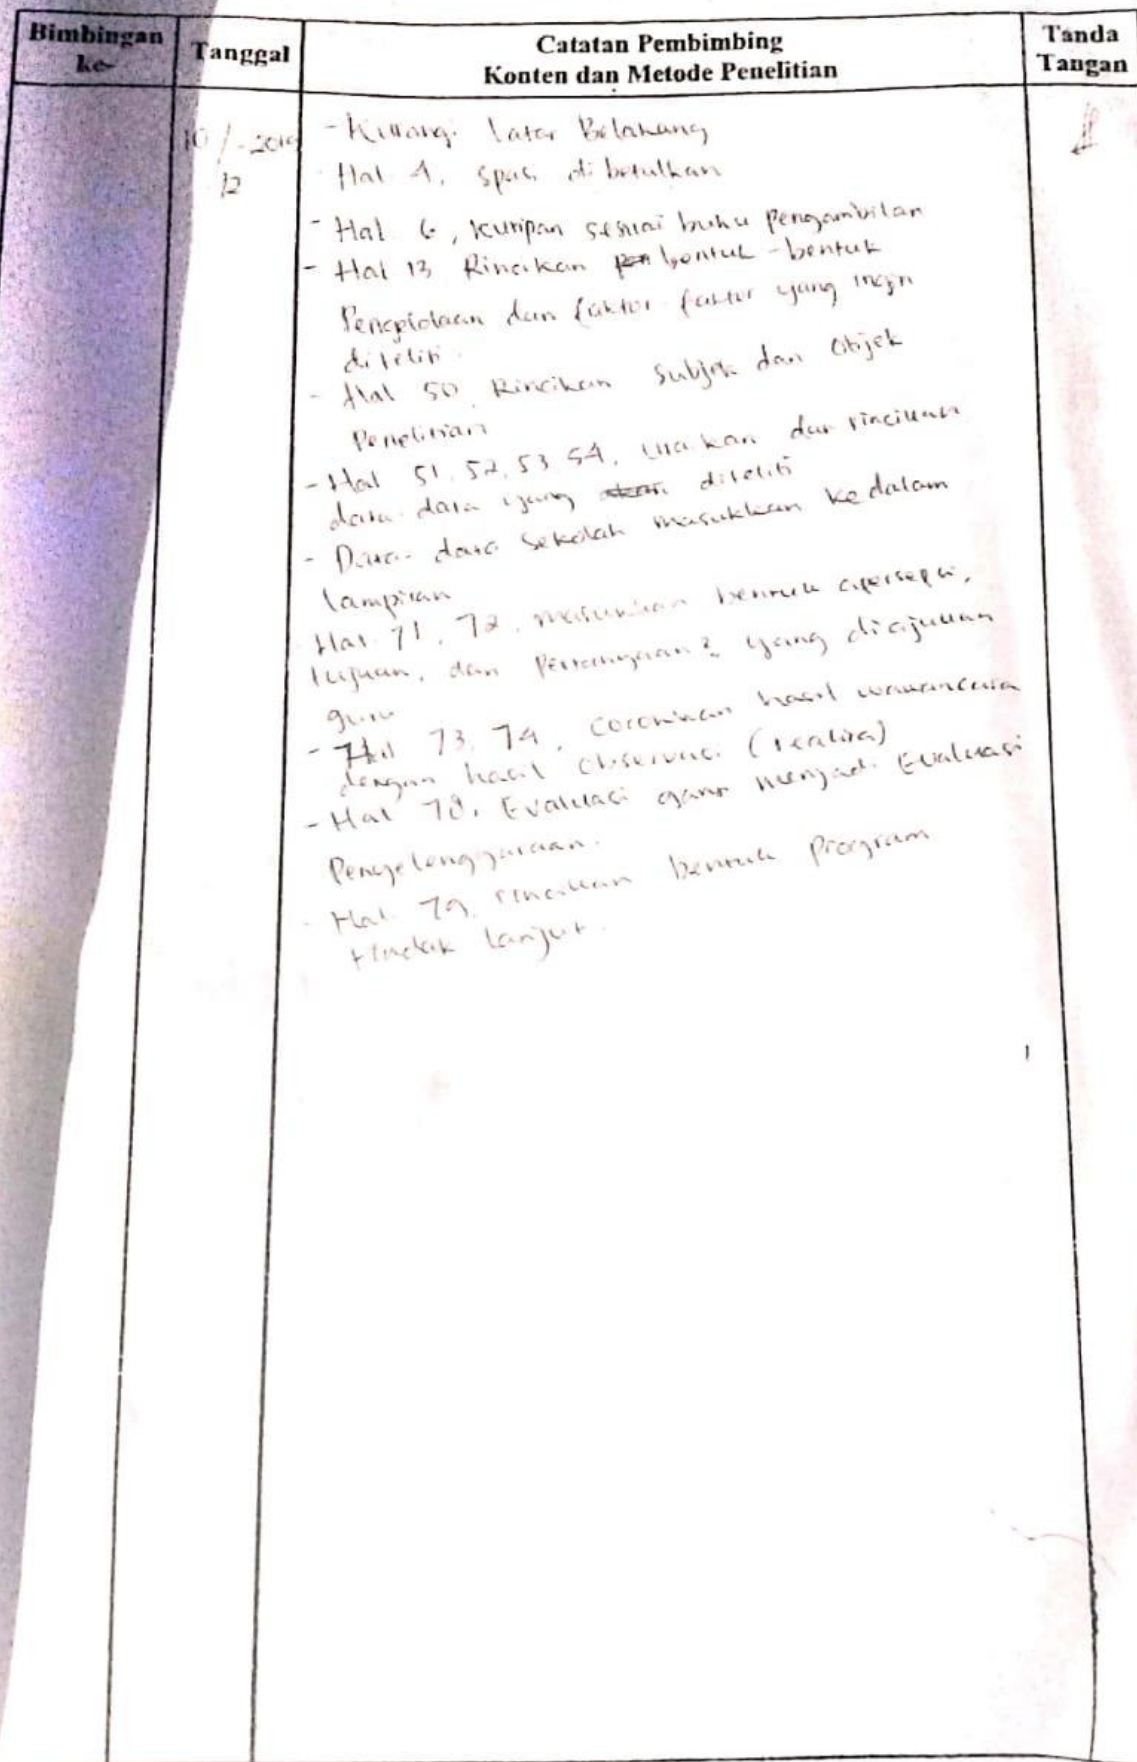 Bimbingan ke-
Tanggal
Catatan Pembimbing
Konten dan Metode Penelitian
Tanda Tangan
10/-2019
12
- Kurangi Latar Belakang
Hal 4, spasi dibetulkan
- Hal 6, kutipan sesuai buku pengambilan
- Hal 13 Rincikan bentuk-bentuk
Pengelolaan dan faktor-faktor yang ingin
diteliti.
- Hal 50 Rincikan Subjek dan Objek
Penelitian
- Hal 51, 52, 53 54, dan rincikan
data-data yang diteliti
- Data-data sekolah masukkan kedalam
lampiran
Hal 71, 72, masukkan bentuk apersepsi,
tujuan, dan Pertanyaan2 yang diajukan
guru
- Hal 73, 74, cocokkan hasil wawancara
dengan hasil observasi (realita)
- Hal 78, Evaluasi ganti menjadi Evaluasi
Penyelenggaraan.
- Hal 79, rincikan bentuk Program
tindak lanjut.